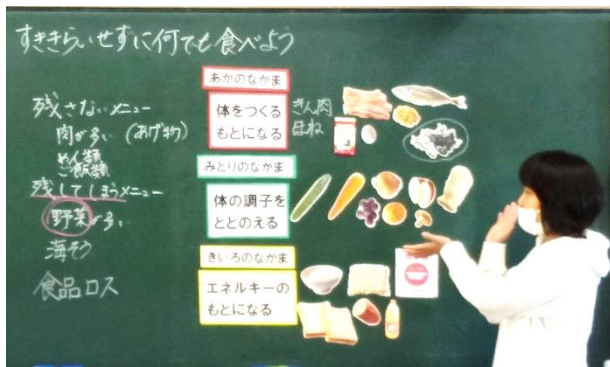 すききらいせずに何でも食べよう
残さないメニュー
肉が多い (あげ物)
めん類
ご飯類
残してしまうメニュー
野菜が多い
海そう
食品ロス
あかのなかま
体をつくる
もとになる
きん肉
ほね
みどりのなかま
体の調子を
ととのえる
きいろのなかま
エネルギーの
もとになる